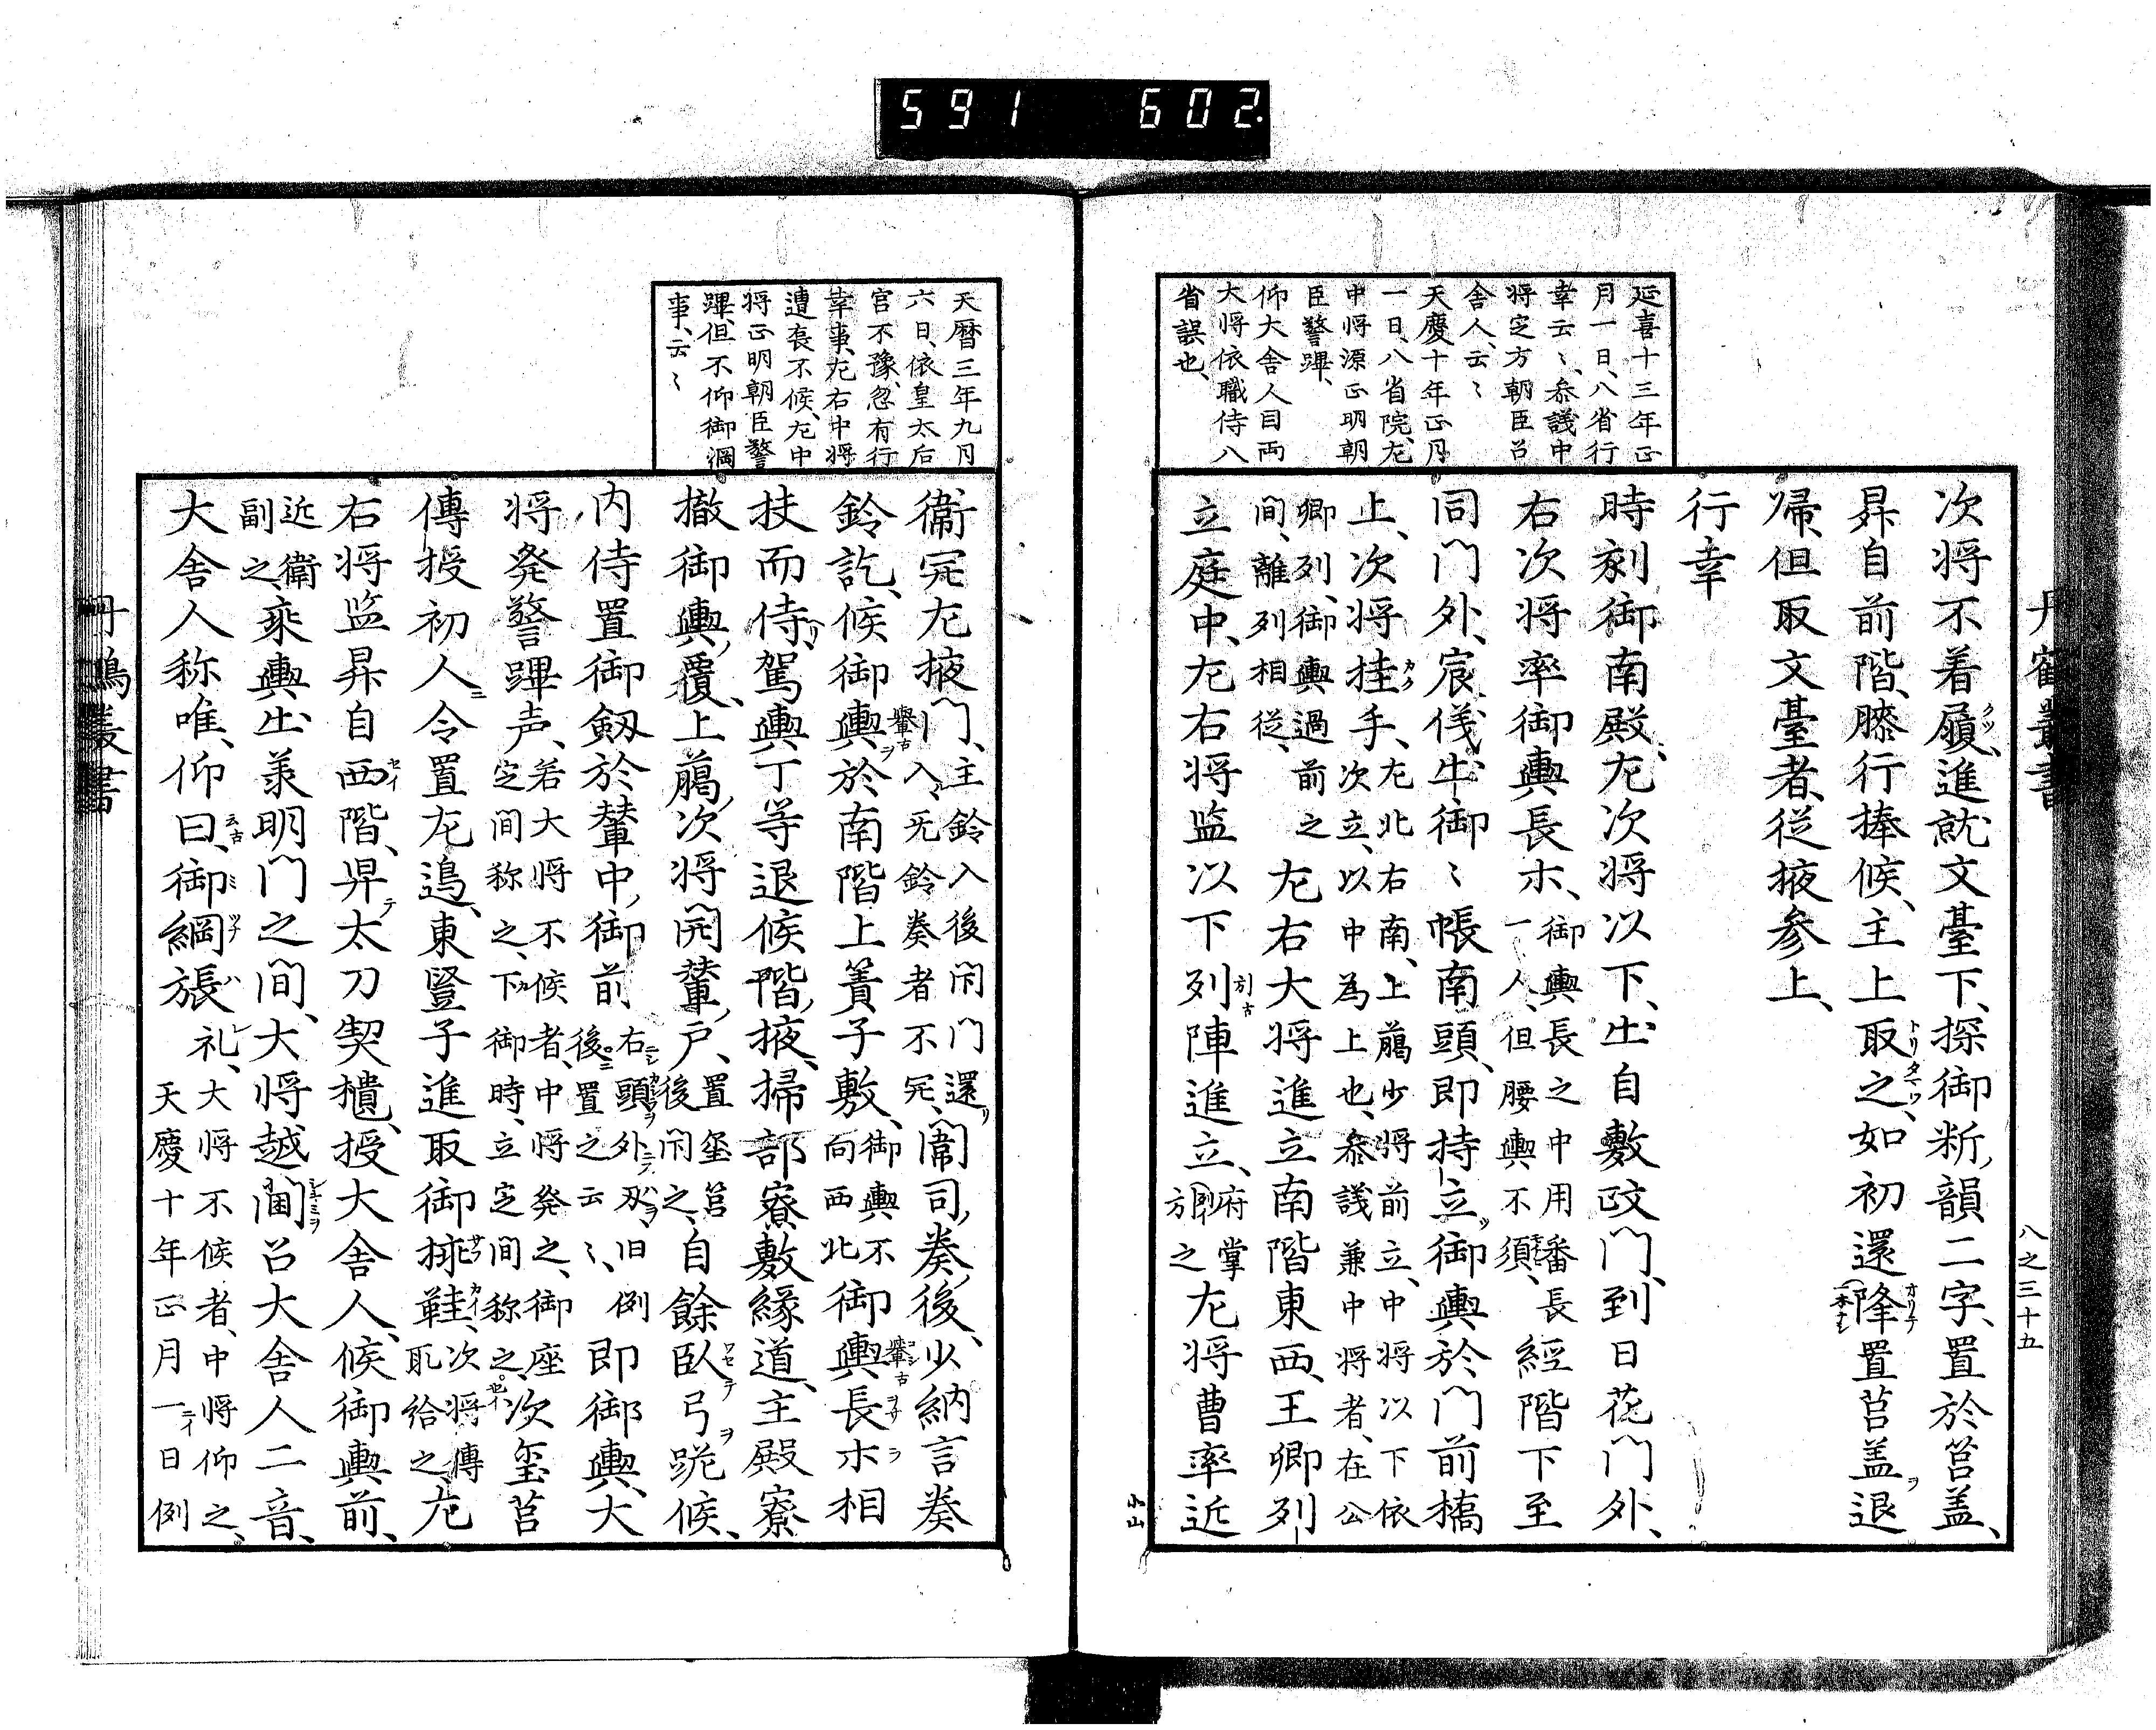 591 602
丹鶴叢書
八之三十五
延喜十三年正
月一日、八省行
幸云〻、叅議中
将定方朝臣召
舎人、云〻
天慶十年正月
一日、八省院、左
中将源正明朝
臣警蹕、
仰大舎人目両
大将依職侍八
省誤也、
次将不着履、進就文臺下、探御料韻二字、置於筥盖、
昇自前階、膝行捧候、主上取之、如初還降置筥盖退
帰、但取文臺者、従掖参上、
行幸
時刻御南殿、左次将以下、出自敷政門、到日花門外、
右次将率御輿長等、御輿長之中用番長一人、但腰輿不須、経階下至
同門外、宸儀出御〻帳南頭、即持立御輿於門前橋
上、次将挂手、左北右南、上臈少将前立、中将以下依次立、以中為上也、叅議兼中将者、在公
卿列、御輿過前之間、離列相従、左右大将進立南階東西、王卿列
立庭中、左右将監以下列陣進立、府掌即之方左将曹率近
天暦三年九月
六日、依皇太后
宮不豫、忽有行
幸事、左右中将
遭喪不候、左中
将正明朝臣警
蹕、但不仰御綱
事、云〻
衛開左掖門、主鈴入後閇門還入、无鈴奏者不開、闈司奏後、少納言奏
鈴訖、候御輿於南階上簀子敷、御輿不向西北御輿長等相
扶而侍、駕輿丁等退候階掖、掃部寮敷縁道、主殿寮
撤御輿覆、上臈次将開輦戸、置璽筥後閇之、自餘臥弓跪候、
内侍置御劔於輦中、御前右頭外刄、旧例後置之云〻、即御輿、大
将発警蹕声、若大将不候者、中将発之、御座定間称之、下御時、立定間称之、次璽筥
傳授初人令置左邊、東竪子進取御挿鞋、次将傳取給之、左
右将監昇自西階、舁太刀契櫃、授大舎人、候御輿前、
近衛副之、乗輿出羕明門之間、大将越閫召大舎人二音、
大舎人称唯、仰曰、御綱張礼、大将不候者、中将仰之、天慶十年正月一日例
丹鶴叢書